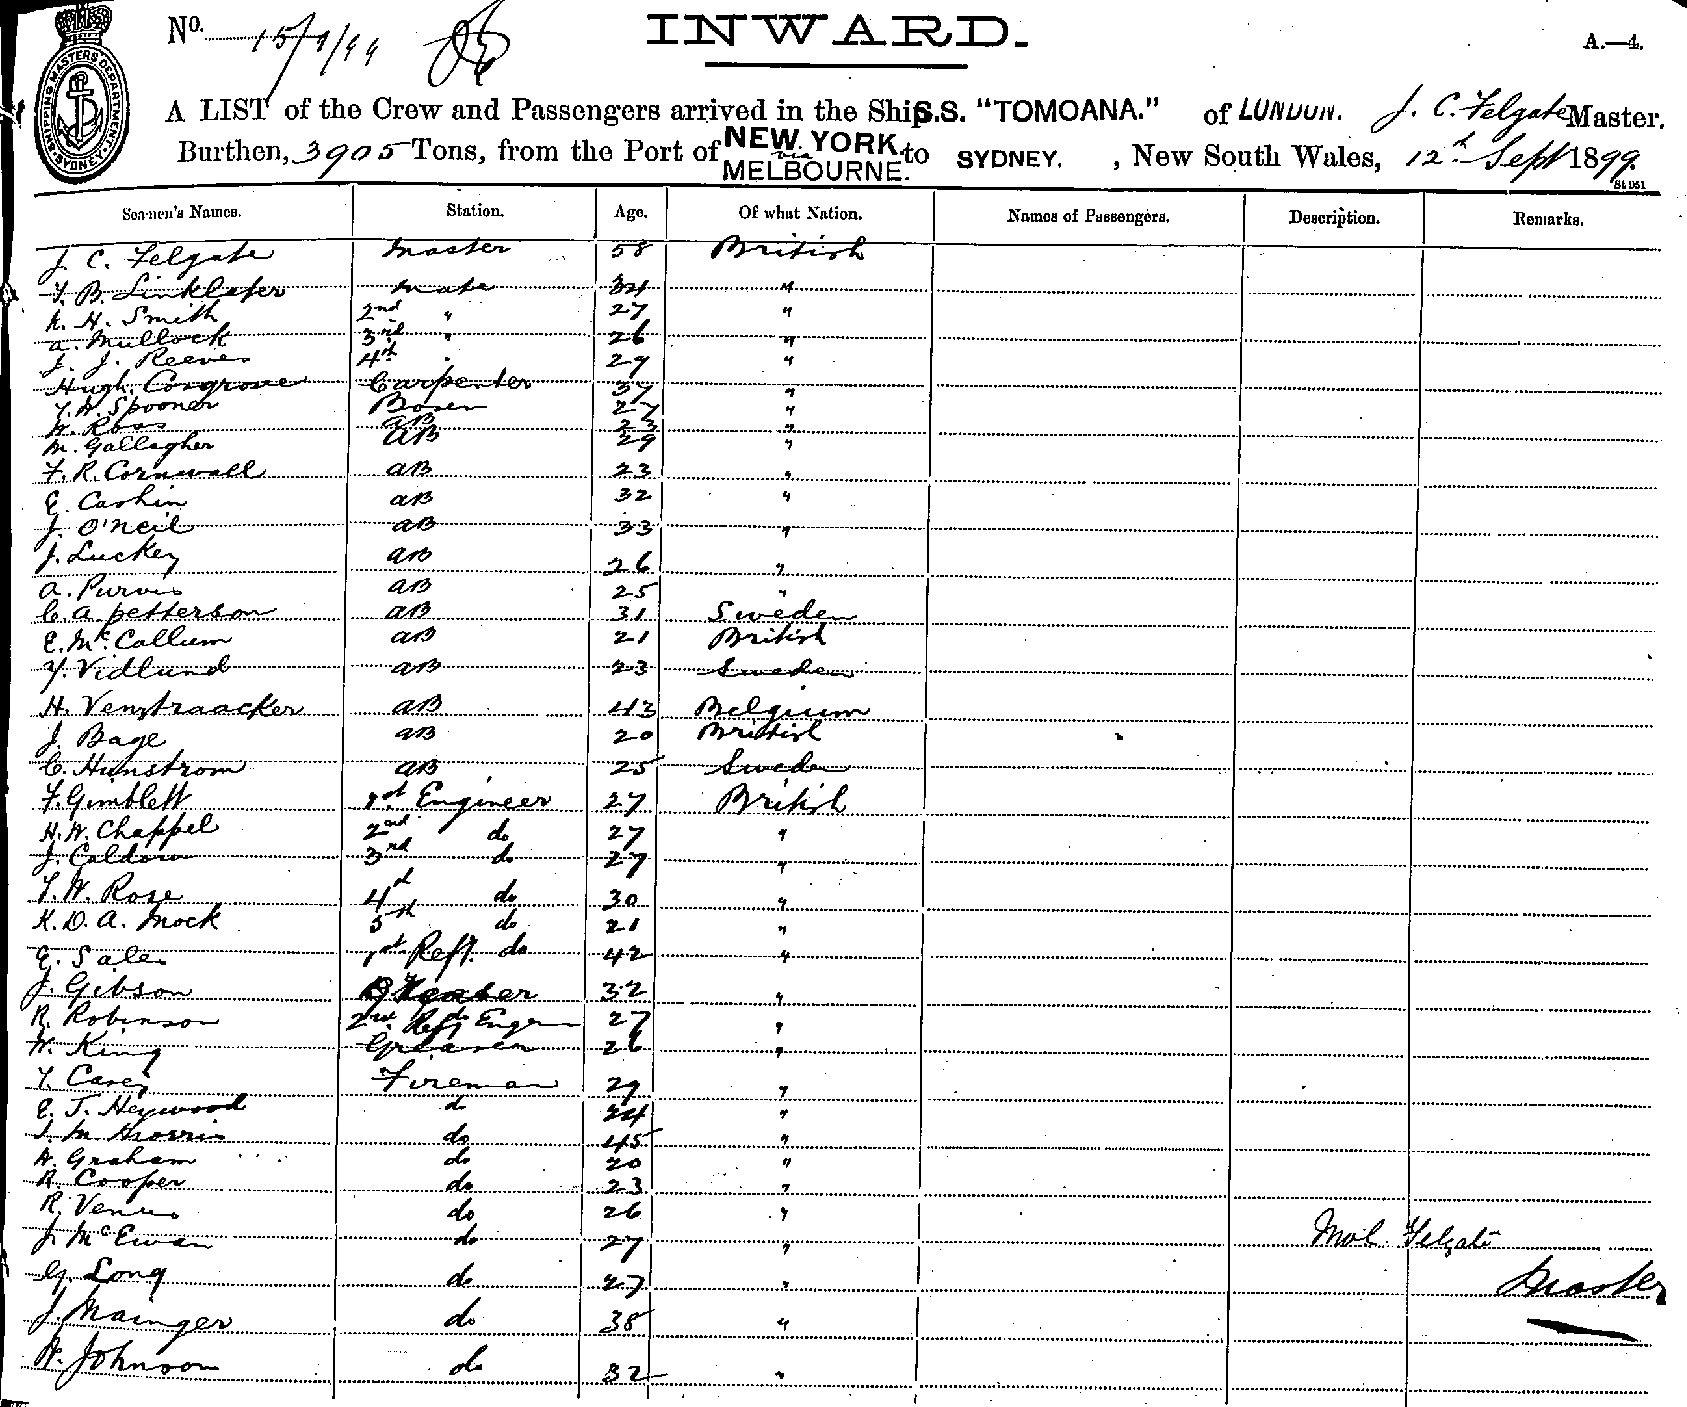 No. 15/9/99
INWARD.
A.—4.
SHIPPING MASTERS DEPARTMENT. SYDNEY
A LIST of the Crew and Passengers arrived in the Ship S.S. "TOMOANA." of LONDON. J. C. Felgate Master.
Burthen, 3905 Tons, from the Port of NEW YORK via MELBOURNE. to SYDNEY. , New South Wales, 12th Sept 1899.
Seamen's Names. Station. Age. Of what Nation. Names of Passengers. Description. Remarks.
J. C. Felgate Master 58 British
T. B. Linklater Mate 34 "
A. H. Smith 2nd " 27 "
A. Mullock 3rd " 26 "
J. J. Reeves 4th " 29 "
Hugh Cosgrove Carpenter 37 "
T. H. Spooner Bosen 27 "
W. Ross AB 23 "
M. Gallagher AB 29 "
F. R. Cornwall AB 23 "
E. Cashin AB 32 "
J. O'Neil AB 33 "
J. Luckey AB 26 "
A. Purvis AB 25 "
C. A. Petterson AB 31 Sweden
E. McCallum AB 21 British
Y. Vidlund AB 23 Sweden
H. Venstraacker AB 43 Belgium
J. Bage AB 20 British
C. Hunstrom AB 25 Sweden
F. Gimblett 1st Engineer 27 British
H. W. Chappel 2nd do 27 "
J. Caldow 3rd do 27 "
T. W. Rose 4th do 30 "
K. D. A. Mock 5th do 21 "
E. Sales 1st Refr. do 42 "
J. Gibson 32 "
R. Robinson 2nd Refg Engr 27 "
W. King Greaser 26 "
T. Casey Fireman 29 "
E. T. Heywood do 24 "
J. M. do 45 "
A. Graham do 20 "
R. Cooper do 23 "
R. Venus do 26 "
J. McEwan do 27 "
G. Long do 27 "
Felgate
Master
J. Mainger do 38 "
W. Johnson do 32 "